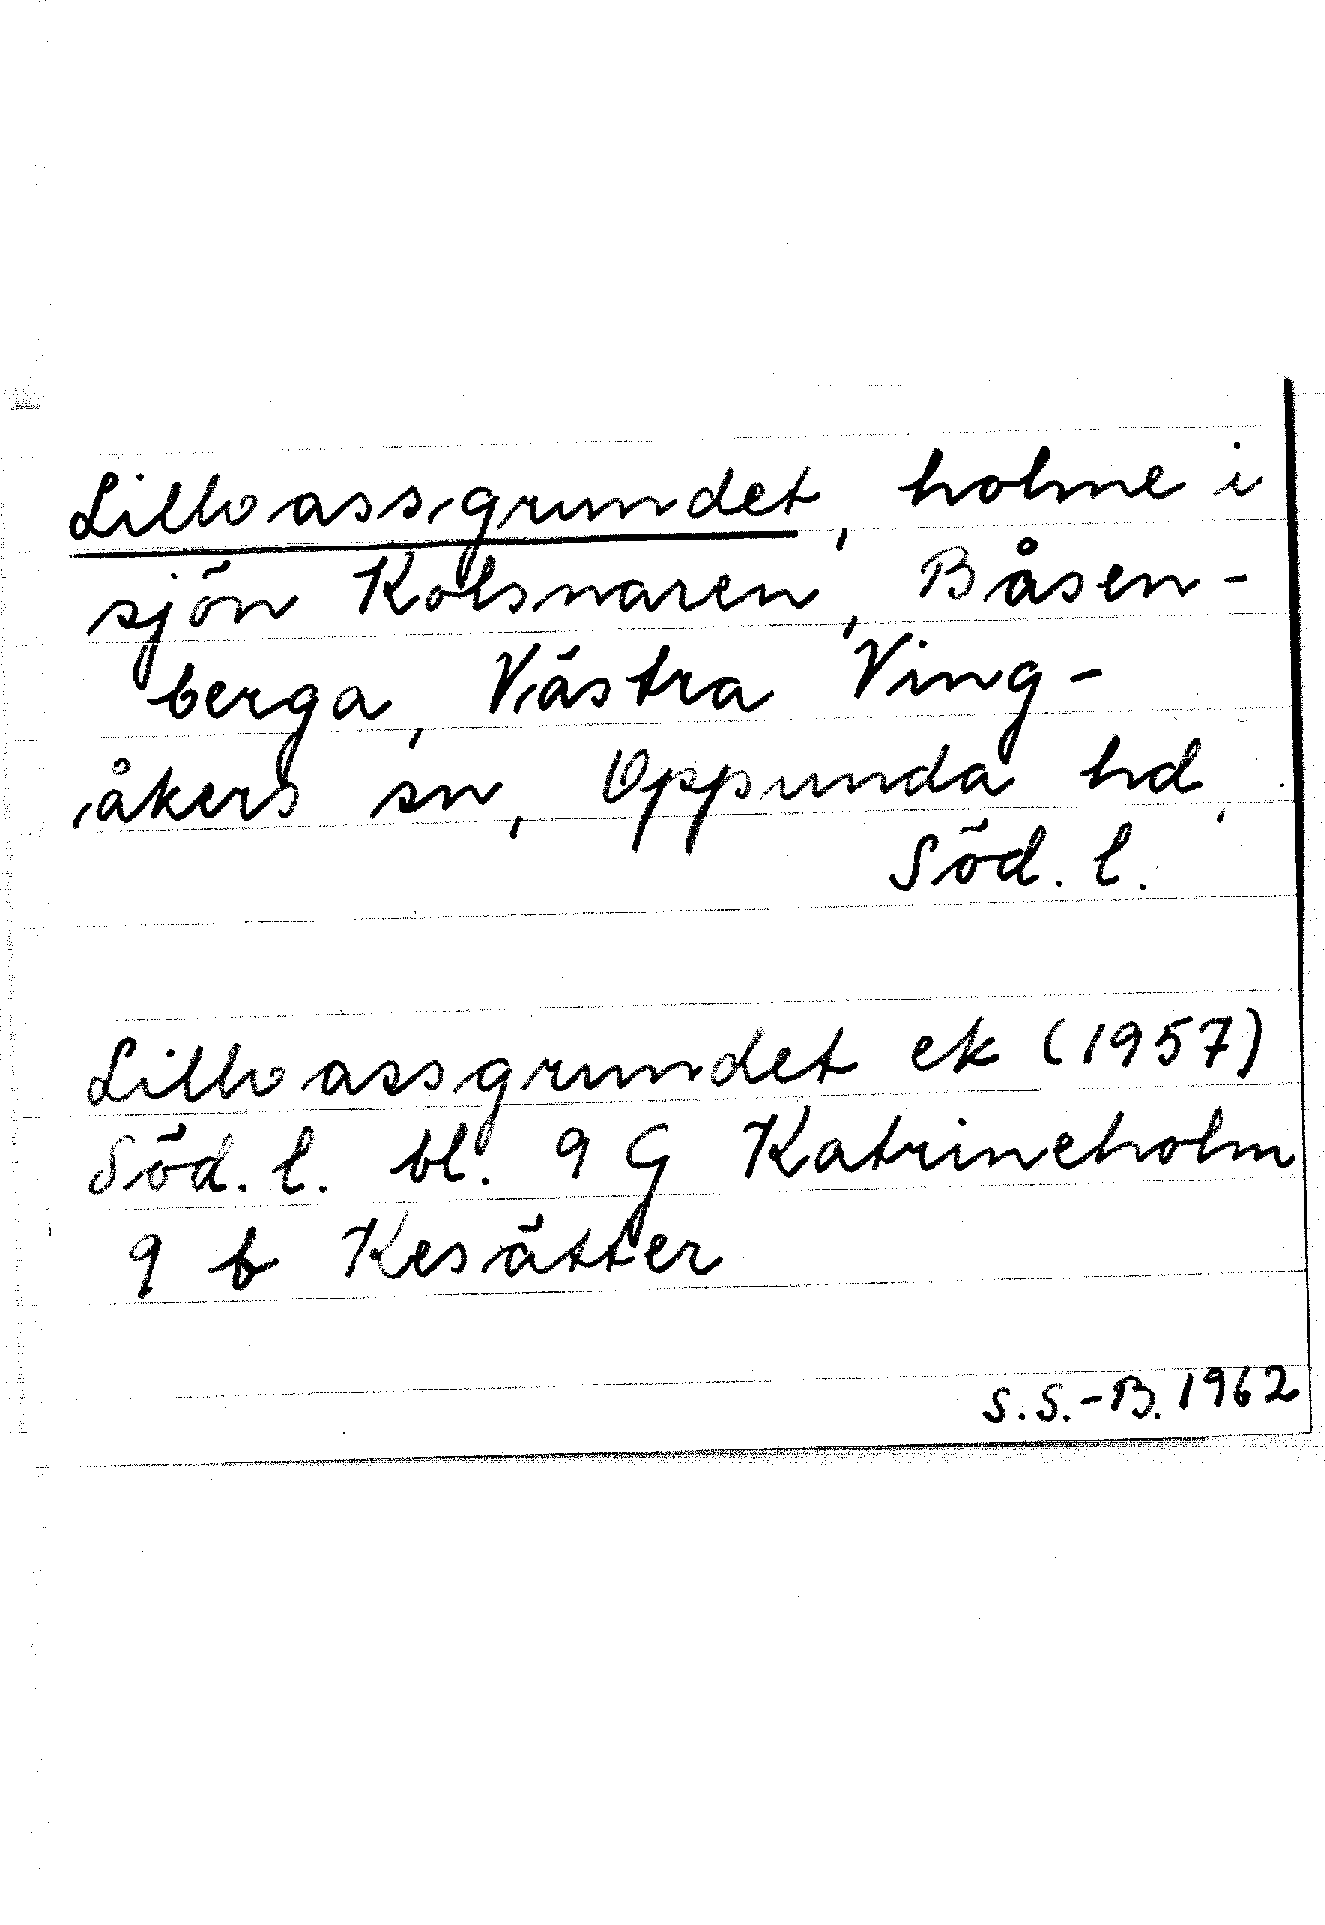 Lilloassgrundet, holme i
sjön Kolsnaren, Båsen-
berga, Västra Ving-
åkers sn, Oppunda hd,
Söd. l.
Lilloassgrundet ek (1957)
Söd. l. bl. 9 G Katrineholm
9 b Kesätter
S.S.-B. 1962